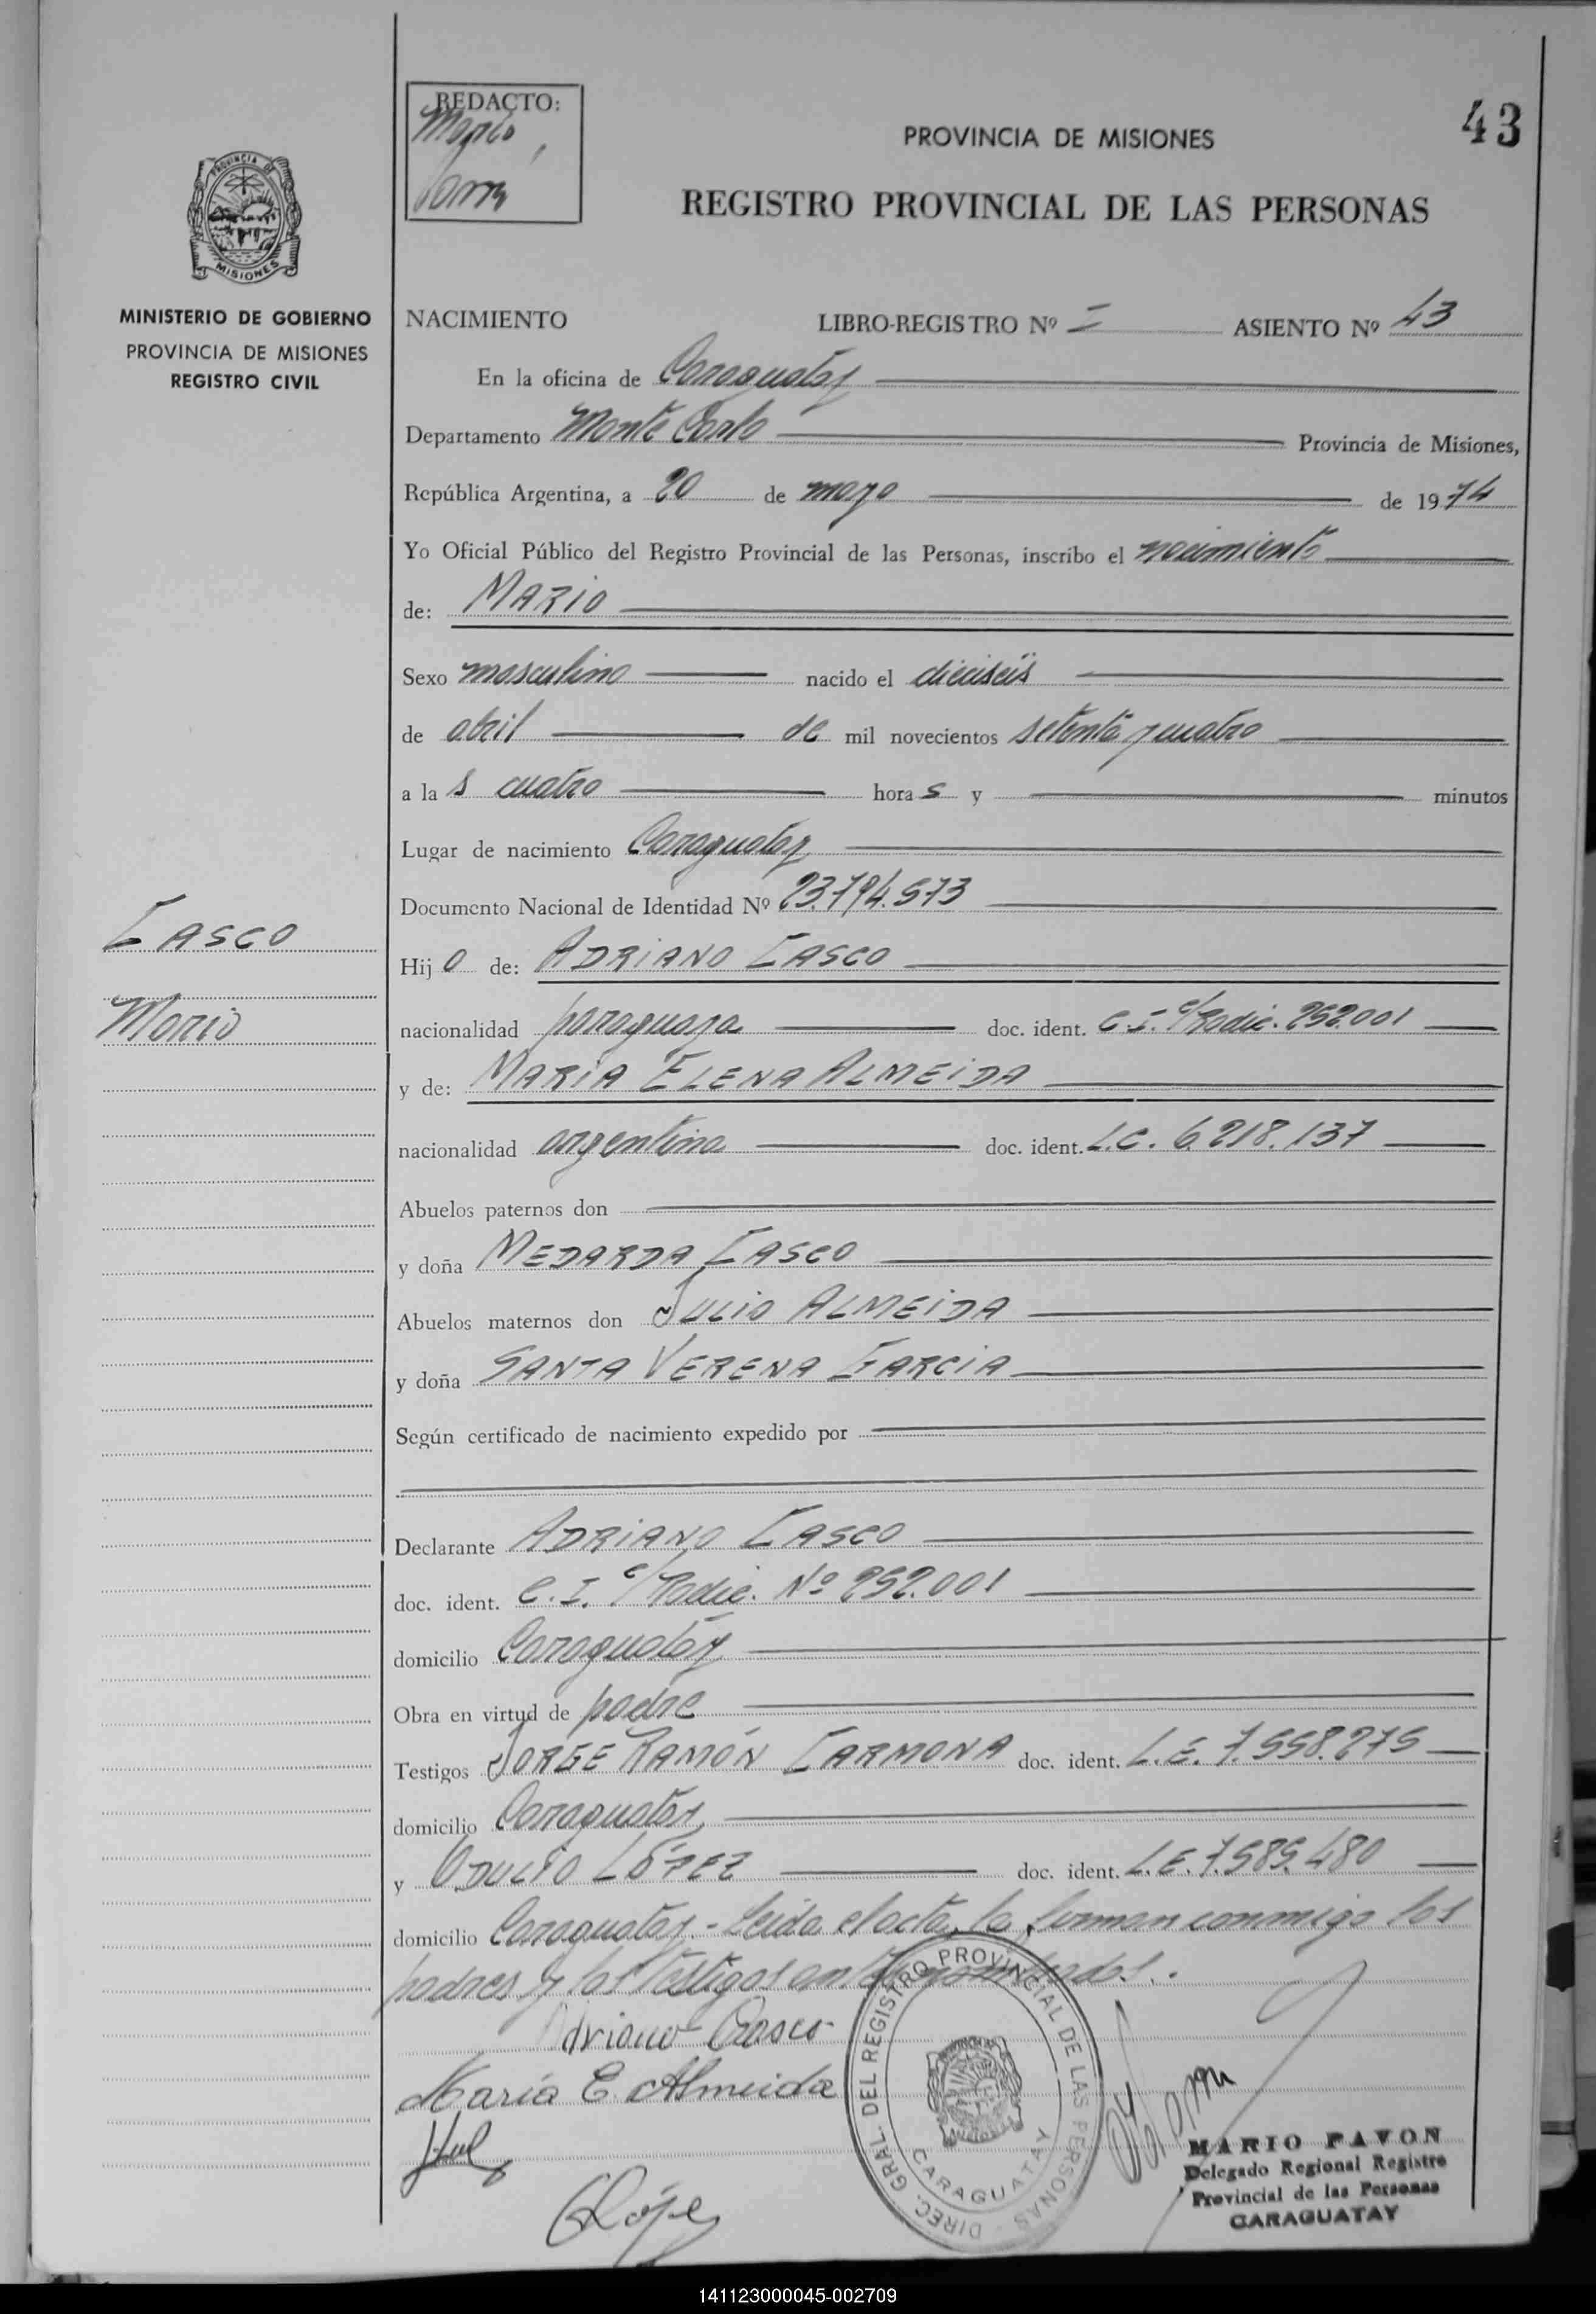 REDACTO:
Mario
43
PROVINCIA DE MISIONES
REGISTRO PROVINCIAL DE LAS PERSONAS
PROVINCIA DE
MISIONES
MINISTERIO DE GOBIERNO
PROVINCIA DE MISIONES
REGISTRO CIVIL
NACIMIENTO LIBRO-REGISTRO Nº I ASIENTO Nº 43
En la oficina de Caraguatay
Departamento Monte Carlo Provincia de Misiones,
República Argentina, a 20 de mayo de 1974
Yo Oficial Público del Registro Provincial de las Personas, inscribo el nacimiento
de: MARIO
Sexo masculino nacido el dieciseis
de abril de mil novecientos setenta y cuatro
a la s cuatro hora s y minutos
Lugar de nacimiento Caraguatay
Documento Nacional de Identidad Nº 23.794.573
CASCO
Mario
Hij o de: ADRIANO CASCO
nacionalidad paraguaya doc. ident. C.I. c/Radic. 252.001
y de: MARIA ELENA ALMEIDA
nacionalidad argentina doc. ident. L.C. 6.218.137
Abuelos paternos don
y doña MEDARDA CASCO
Abuelos maternos don JULIO ALMEIDA
y doña SANTA VERENA GARCIA
Según certificado de nacimiento expedido por
Declarante ADRIANO CASCO
doc. ident. C.I. c/Radic. Nº 252.001
domicilio Caraguatay
Obra en virtud de padre
Testigos JORGE RAMÓN CARMONA doc. ident. L.E. 7.558.275
domicilio Caraguatay
y ODULIO LÓPEZ doc. ident. L.E. 7.585.480
domicilio Caraguatay.- Leida el acta, la firman conmigo los
padres y los testigos antes nombrados.
Adriano Casco
Maria E. Almeida
López
DIREC. GRAL. DEL REGISTRO PROVINCIAL DE LAS PERSONAS
CARAGUATAY
MARIO PAVON
Delegado Regional Registro
Provincial de las Personas
CARAGUATAY
141123000045-002709